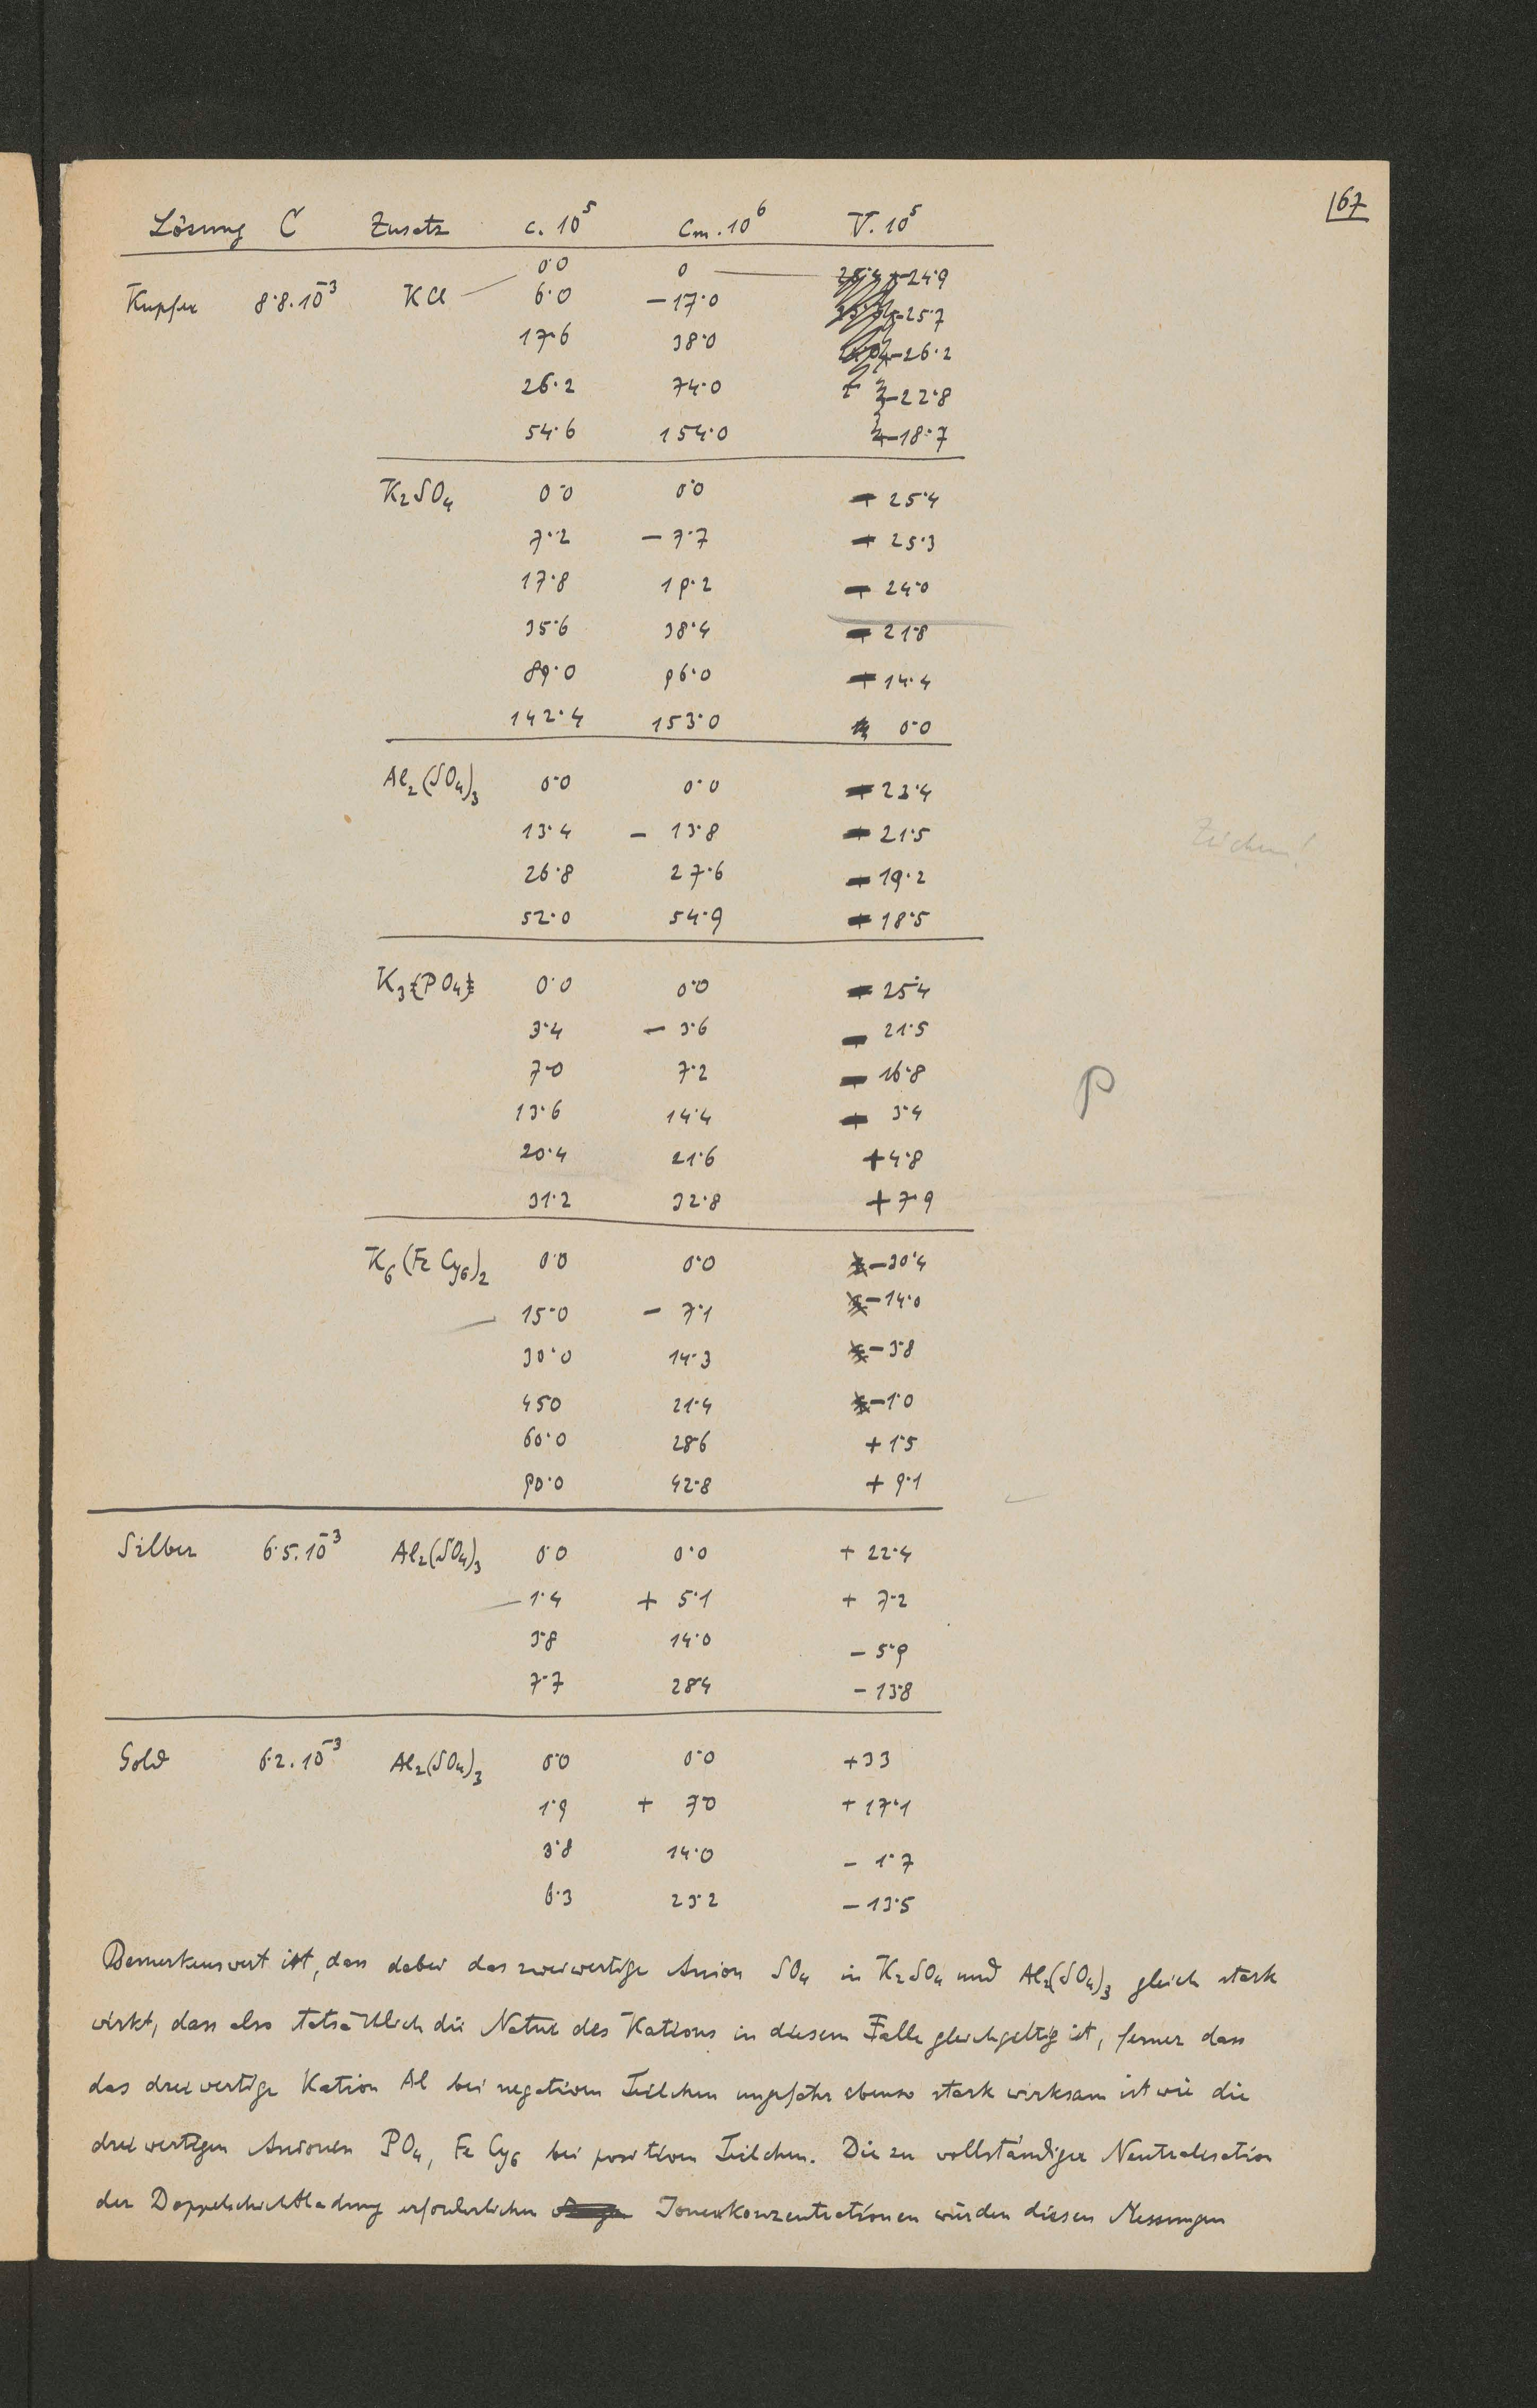 167
Lösung C Zusatz c. 10⁵ Cm. 10⁶ V. 10⁵
0·0 0 -24·9
Kupfer 8·8.10⁻³ KCl 6·0 -17·0 -25·7
17·6 38·0 -26·2
26·2 74·0 -22·8
54·6 154·0 -18·7
K₂SO₄ 0·0 0·0 + 25·4
7·2 - 7·7 + 25·3
17·8 19·2 + 24·0
35·6 38·4 + 21·8
89·0 96·0 + 14·4
142·4 153·0 0·0
Al₂(SO₄)₃ 0·0 0·0 + 23·4
13·4 - 13·8 + 21·5
26·8 27·6 + 19·2
52·0 54·9 + 18·5
Zeichen!
K₃(PO₄) 0·0 0·0 + 25·4
3·4 - 3·6 - 21·5
7·0 7·2 - 16·8
P
13·6 14·4 + 3·4
20·4 21·6 + 4·8
31·2 32·8 + 7·9
K₆(Fe Cy₆)₂ 0·0 0·0 - 30·4
15·0 - 7·1 - 14·0
30·0 14·3 - 3·8
450 21·4 - 1·0
60·0 28·6 + 1·5
90·0 42·8 + 9·1
Silber 6·5.10⁻³ Al₂(SO₄)₃ 0·0 0·0 + 22·4
1·4 + 5·1 + 7·2
3·8 14·0 - 5·9
7·7 28·4 - 13·8
Gold 6·2.10⁻³ Al₂(SO₄)₃ 0·0 0·0 + 33
1·9 + 7·0 + 17·1
3·8 14·0 - 1·7
6·3 23·2 - 13·5
Bemerkenswert ist, dass dabei das zweiwertige Anion SO₄ in K₂SO₄ und Al₂(SO₄)₃ gleich stark
wirkt, dass also tatsächlich die Natur des Kations in diesem Falle gleichgeltig ist, ferner dass
das dreiwertige Kation Al bei negativen Teilchen ungefähr ebenso stark wirksam ist wie die
dreiwertigen Anionen PO₄, Fe Cy₆ bei positiven Teilchen. Die zu vollständiger Neutralisation
der Doppelschichtladung erforderlichen Ionenkonzentrationen würden diesen Messungen